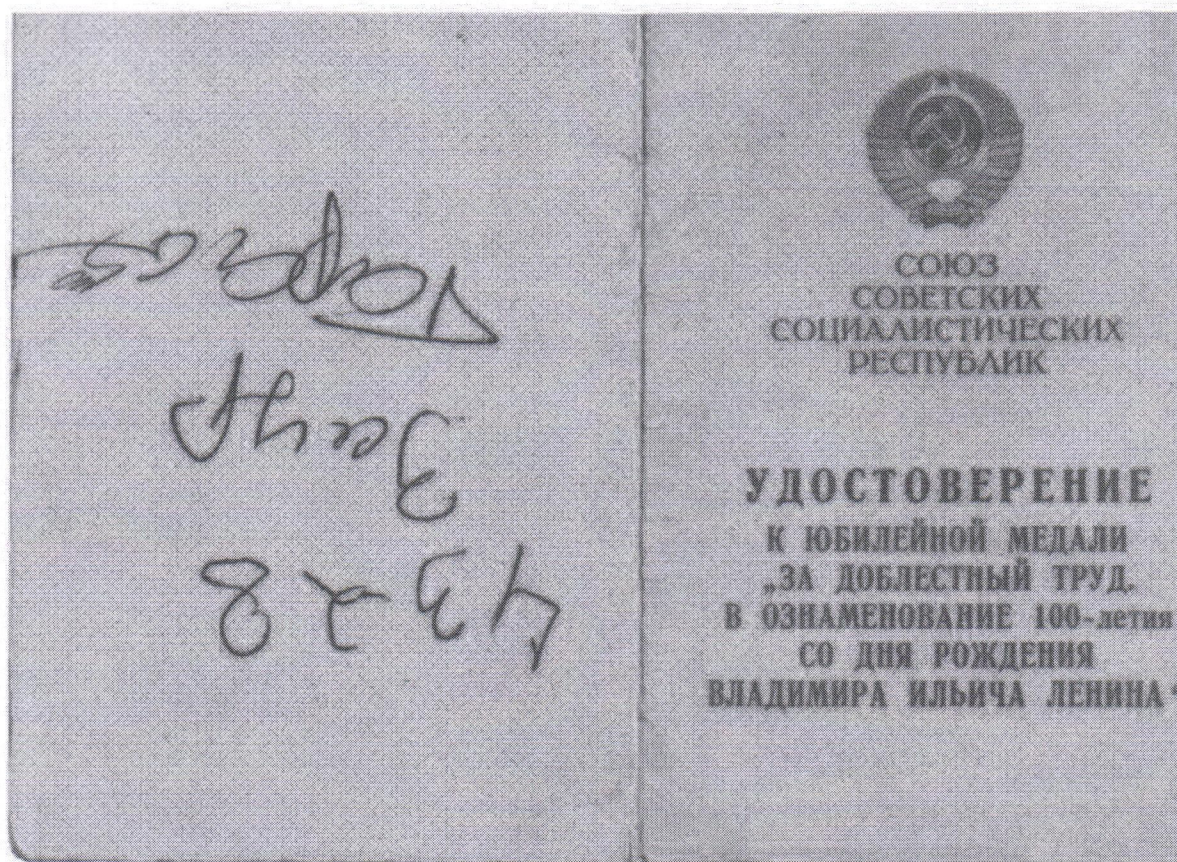 43-28
СОЮЗ
СОВЕТСКИХ
СОЦИАЛИСТИЧЕСКИХ
РЕСПУБЛИК
УДОСТОВЕРЕНИЕ
К ЮБИЛЕЙНОЙ МЕДАЛИ
„ЗА ДОБЛЕСТНЫЙ ТРУД.
В ОЗНАМЕНОВАНИЕ 100-летия
СО ДНЯ РОЖДЕНИЯ
ВЛАДИМИРА ИЛЬИЧА ЛЕНИНА“